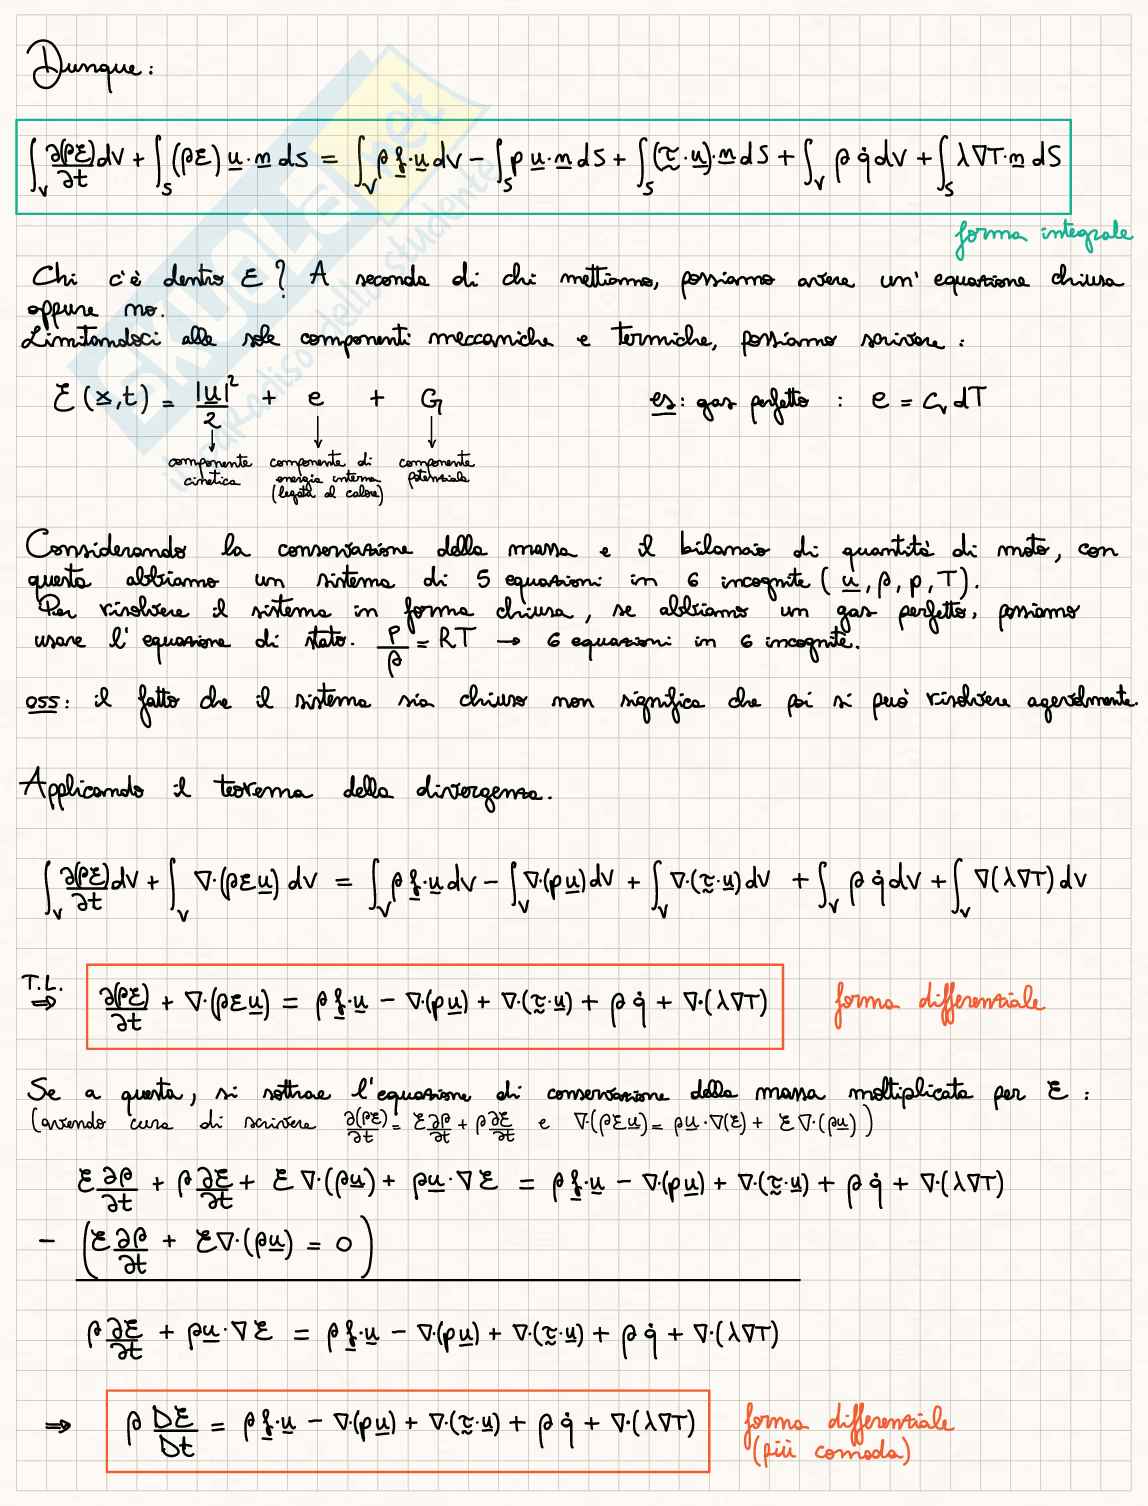 Dunque:
∫_V ∂(ρƐ)/∂t dV + ∫_S (ρƐ) u·n dS = ∫_V ρ f·u dV − ∫_S p u·n dS + ∫_S (τ·u)·n dS + ∫_V ρ q̇ dV + ∫_S λ∇T·n dS
forma integrale
Chi c'è dentro Ɛ? A seconda di chi mettiamo, possiamo avere un'equazione chiusa
oppure no.
Limitandoci alle sole componenti meccaniche e termiche, possiamo scrivere:
Ɛ(x,t) = |u|²/2 + e + G es: gas perfetto : e = c_v dT
componente componente di componente
cinetica energia interna potenziale
(legata al calore)
Considerando la conservazione della massa e il bilancio di quantità di moto, con
questa abbiamo un sistema di 5 equazioni in 6 incognite (u, ρ, p, T).
Per risolvere il sistema in forma chiusa, se abbiamo un gas perfetto, possiamo
usare l'equazione di stato. p/ρ = RT → 6 equazioni in 6 incognite.
oss: il fatto che il sistema sia chiuso non significa che poi si può risolvere agevolmente.
Applicando il teorema della divergenza.
∫_V ∂(ρƐ)/∂t dV + ∫_V ∇·(ρƐu) dV = ∫_V ρ f·u dV − ∫_V ∇·(pu) dV + ∫_V ∇·(τ·u) dV + ∫_V ρ q̇ dV + ∫_V ∇(λ∇T) dV
T.L. ⇒ ∂(ρƐ)/∂t + ∇·(ρƐu) = ρ f·u − ∇·(pu) + ∇·(τ·u) + ρ q̇ + ∇·(λ∇T) forma differenziale
Se a questa, si sottrae l'equazione di conservazione della massa moltiplicata per Ɛ :
(avendo cura di scrivere ∂(ρƐ)/∂t = Ɛ ∂ρ/∂t + ρ ∂Ɛ/∂t e ∇·(ρƐu) = ρu·∇(Ɛ) + Ɛ∇·(ρu))
Ɛ ∂ρ/∂t + ρ ∂Ɛ/∂t + Ɛ∇·(ρu) + ρu·∇Ɛ = ρ f·u − ∇·(pu) + ∇·(τ·u) + ρ q̇ + ∇·(λ∇T)
− (Ɛ ∂ρ/∂t + Ɛ∇·(ρu) = 0)
ρ ∂Ɛ/∂t + ρu·∇Ɛ = ρ f·u − ∇·(pu) + ∇·(τ·u) + ρ q̇ + ∇·(λ∇T)
⇒ ρ DƐ/Dt = ρ f·u − ∇·(pu) + ∇·(τ·u) + ρ q̇ + ∇·(λ∇T) forma differenziale
(più comoda)